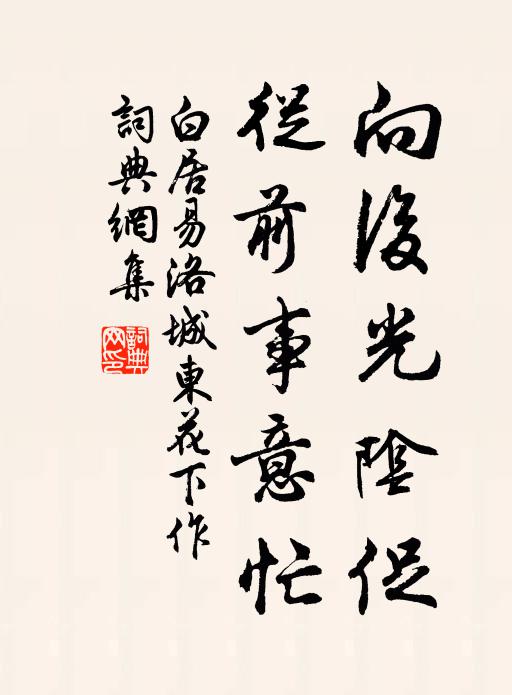 向後光陰促
從前事意忙
白居易洛城東花下作
詞典網集
詞典网印